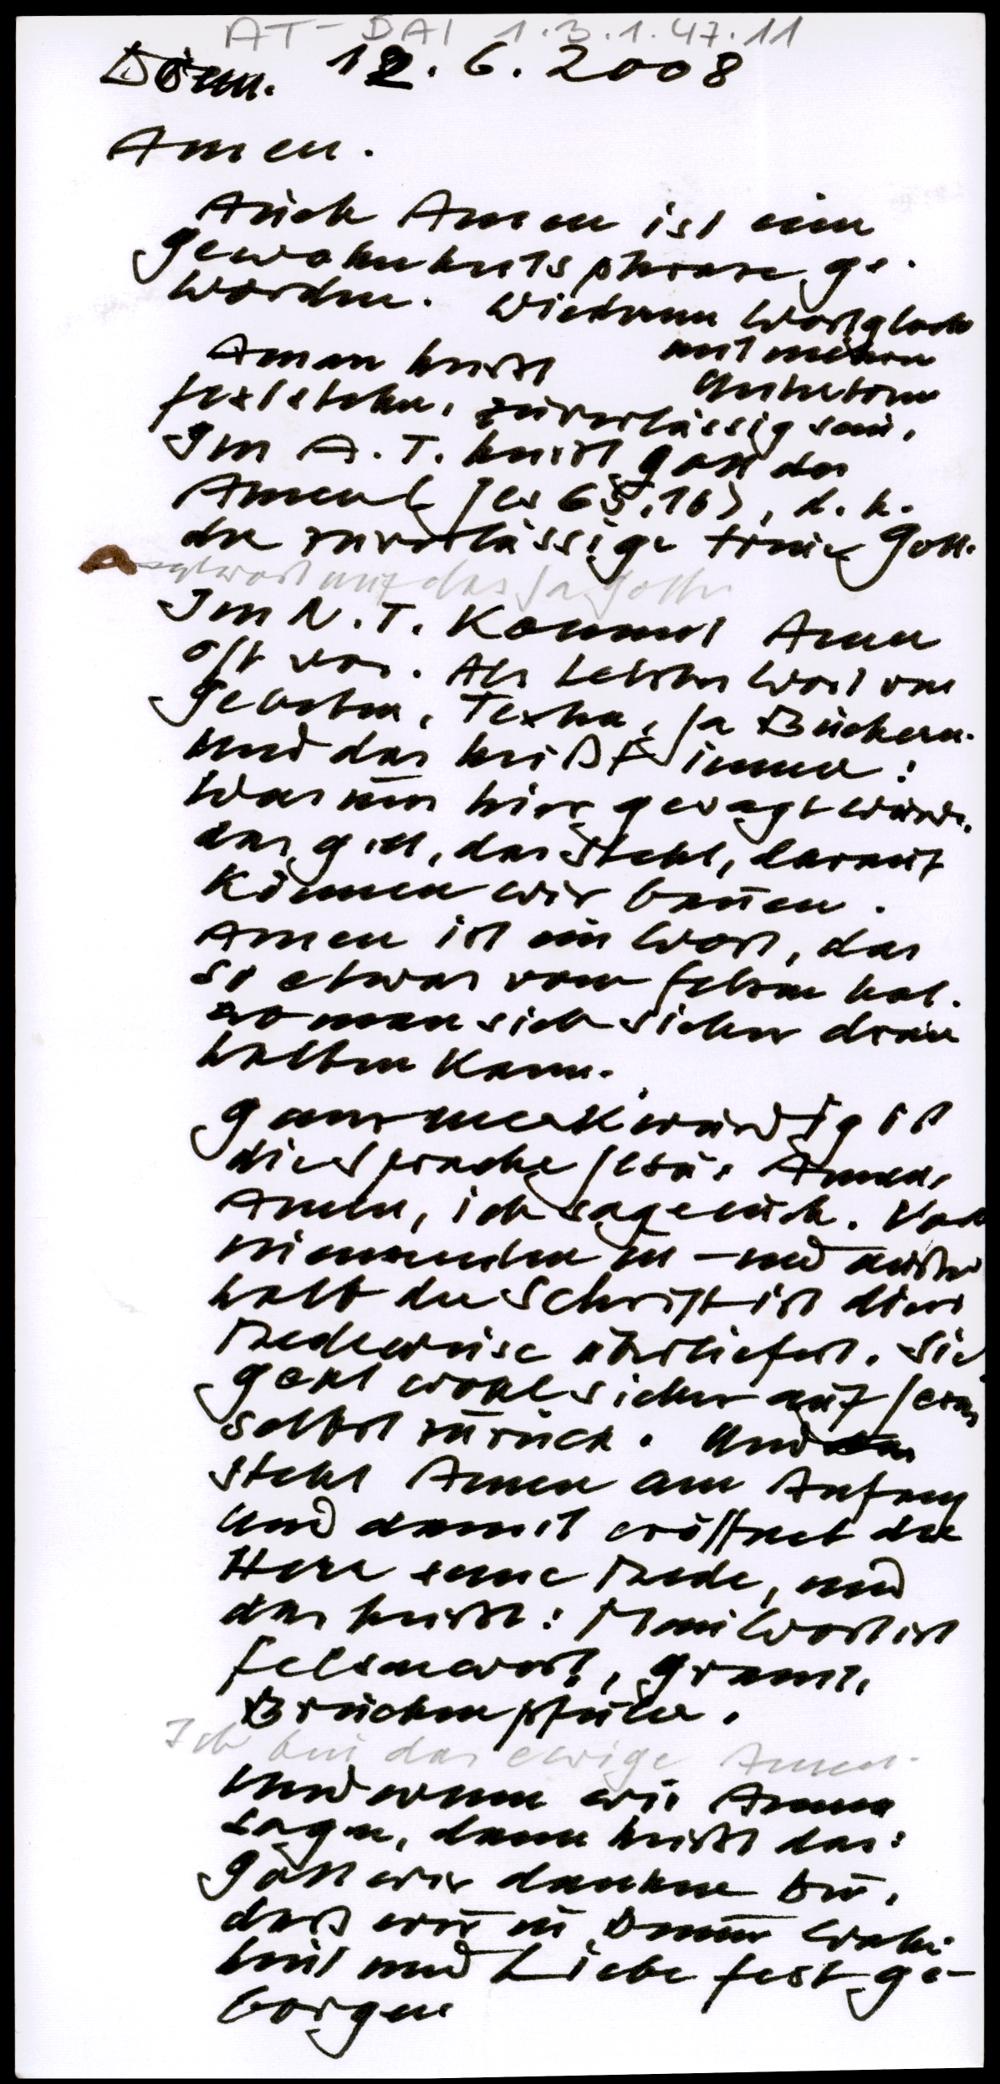 AT-DAI 1.3.1.47.11
Döm. 12.6.2008
Amen.
Auch Amen ist eine
gewohnheitsphrase ge.
worden. Wiederum Wortglocke
mit mehren
Aman heißt
feststehn, zuverlässig sein,
Im A.T. heisst Gott der
Amen (Jes 65,16), d.h.
der zuverlässige treue Gott.
Antwort auf das Ja Gottes
Im N.T. kommt Amen
oft vor. Als letztes Wort von
Gebeten, Texten, ja Büchern.
Und das heißt immer:
Was nun hier gesagt wurde,
das gilt, das steht, darauf
können wir bauen.
Amen ist ein Wort, das
so etwas vom Felsen hat.
wo man sich sicher dran
halten kann.
Ganz merkwürdig ist
die Sprache Jesu: Amen,
Amen, ich sage euch. Von
niemanden in - und außer
halb der Schrift ist diese
Redeweise überliefert. Sie
geht wohl sicher auf Jesus
selbst zurück. Und
steht Amen am Anfang
und damit eröffnet der
Herr seine Rede, und
das heisst: Mein Wort ist
Felsenwort, Granit,
Brückenpfeiler.
Ich bin das ewige Amen.
Und wenn wir Amen
sagen, dann heißt das:
Gott wir danken Dir,
daß wir in Deiner Wahr
heit und Liebe fest ge-
borgen